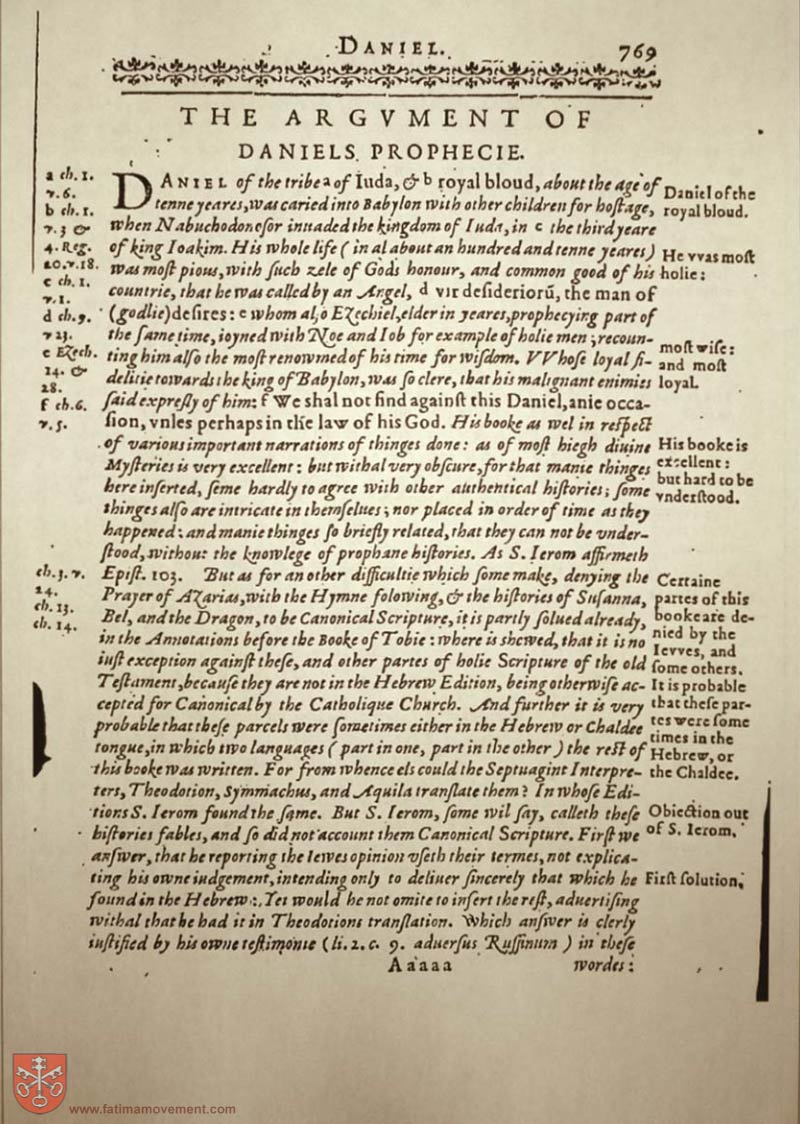 DANIEL. 769
THE ARGVMENT OF
DANIELS PROPHECIE.
DANIEL of the tribe a of Iuda, & b royal bloud, about the age of
tenne yeares, was caried into Babylon with other children for hoſtage,
when Nabuchodoneſor inuaded the kingdom of Iuda, in c the third yeare
of king Ioakim. His whole life (in al about an hundred and tenne yeares)
was moſt pious, with ſuch zele of Gods honour, and common good of his
countrie, that he was called by an Angel, d vir deſideriorū, the man of
(godlie) deſires: e whom alſo Ezechiel, elder in yeares, prophecying part of
the ſame time, ioyned with Noe and Iob for example of holie men; recoun-
ting him alſo the moſt renowmed of his time for wiſdom. VVhoſe loyal fi-
delitie towards the king of Babylon, was ſo clere, that his malignant enimies
ſaid expreſly of him: f We shal not find againſt this Daniel, anie occa-
ſion, vnles perhaps in the law of his God. His booke as wel in reſpect
of various important narrations of thinges done: as of moſt hiegh diuine
Myſteries is very excellent: but withal very obſcure, for that manie thinges
here inſerted, ſeme hardly to agree with other authentical hiſtories; ſome
thinges alſo are intricate in themſelues; nor placed in order of time as they
happened: and manie thinges ſo briefly related, that they can not be vnder-
ſtood, without the knowlege of prophane hiſtories. As S. Ierom affirmeth
Epiſt. 103. But as for an other difficultie which ſome make, denying the
Prayer of Azarias, with the Hymne folowing, & the hiſtories of Suſanna,
Bel, and the Dragon, to be Canonical Scripture, it is partly ſolued already,
in the Annotations before the Booke of Tobie: where is shewed, that it is no
iuſt exception againſt theſe, and other partes of holie Scripture of the old
Teſtament, becauſe they are not in the Hebrew Edition, being otherwiſe ac-
cepted for Canonical by the Catholique Church. And further it is very
probable that theſe parcels were ſometimes either in the Hebrew or Chaldee
tongue, in which two languages (part in one, part in the other) the reſt of
this booke was written. For from whence els could the Septuagint Interpre-
ters, Theodotion, Symmachus, and Aquila tranſlate them? In whoſe Edi-
tions S. Ierom found the ſame. But S. Ierom, ſome wil ſay, calleth theſe
hiſtories fables, and ſo did not account them Canonical Scripture. Firſt we
anſwer, that he reporting the Iewes opinion vſeth their termes, not explica-
ting his owne iudgement, intending only to deliuer ſincerely that which he
found in the Hebrew. Yet would he not omite to inſert the reſt, aduertiſing
withal that he had it in Theodotions tranſlation. Which anſwer is clerly
iuſtified by his owne teſtimonie (li. 2. c. 9. aduerſus Ruffinum) in theſe
Aaaaa wordes:
a ch. 1.
v. 6.
b ch. 1.
v. 3 &
4. Reg.
20. v. 18.
c ch. 1.
v. 1.
d ch. 9.
v 23.
e Ezech.
14. &
28.
f ch. 6.
v. 5.
ch. 3. v.
24.
ch. 13.
ch. 14.
Daniel of the
royal bloud.
He vvas moſt
holie:
moſt wiſe:
and moſt
loyal.
His booke is
excellent:
but hard to be
vnderſtood.
Certaine
partes of this
booke are de-
nied by the
Ievves, and
ſome others.
It is probable
that theſe par-
tes were ſome
times in the
Hebrew, or
the Chaldee.
Obiection out
of S. Ierom.
Firſt ſolution,
www.fatimamovement.com